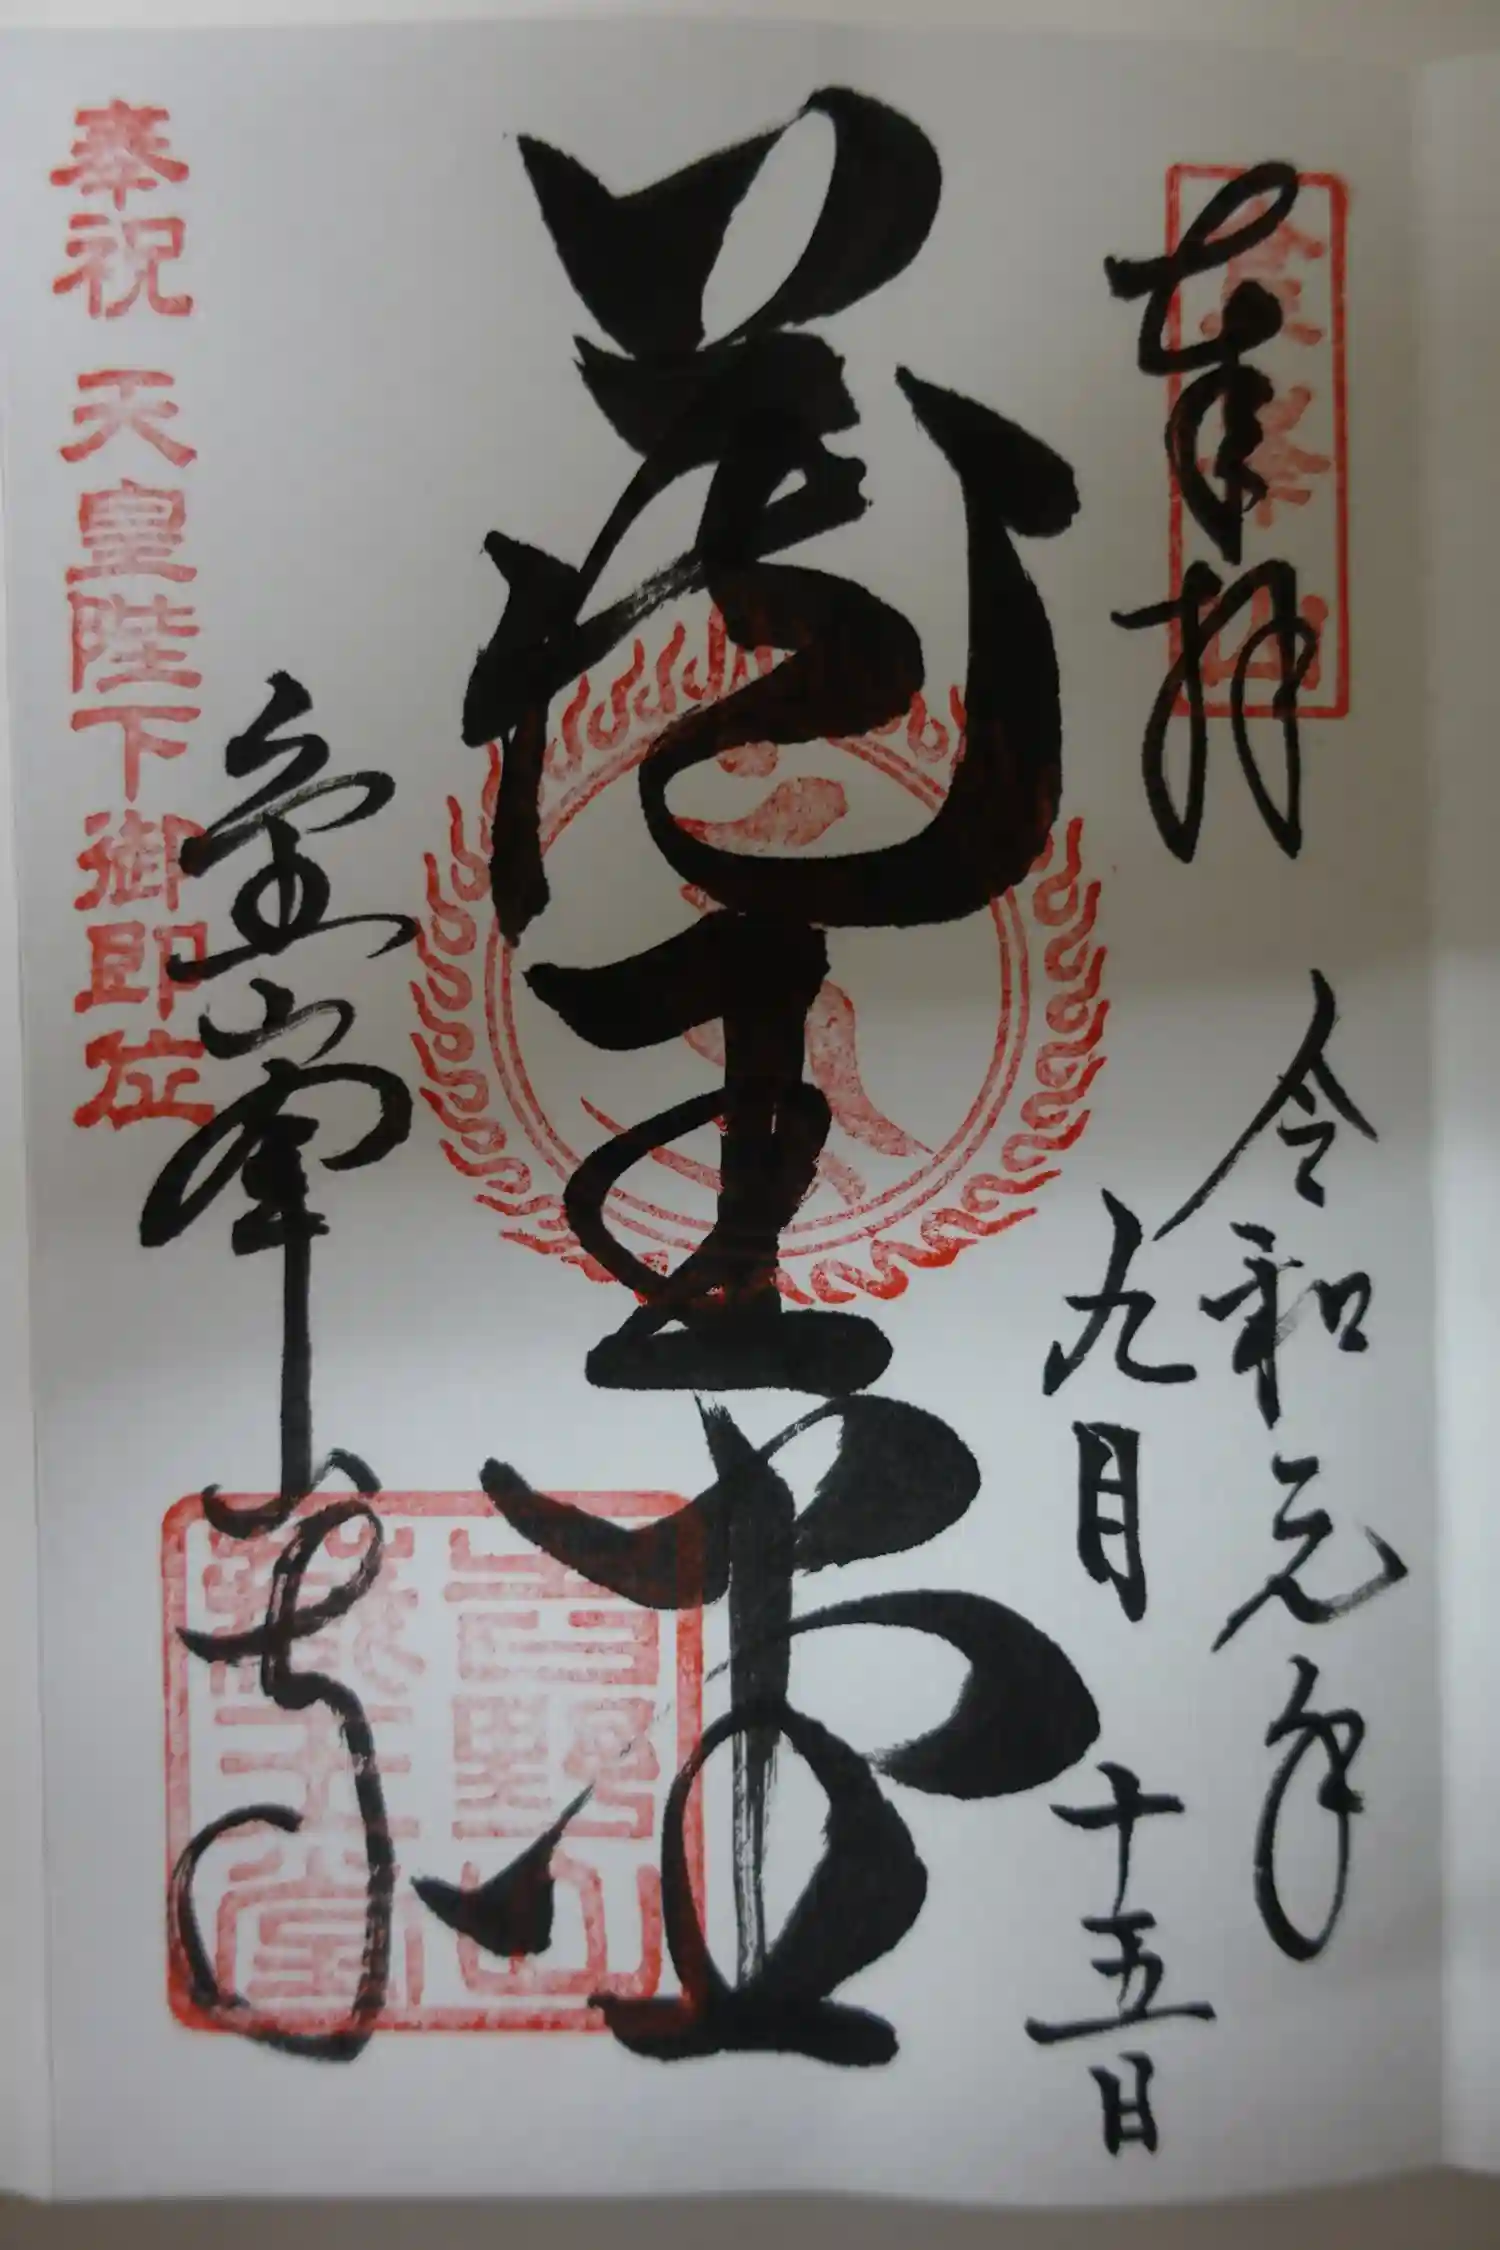 奉拝
金峯山
令和元年
九月十五日
蔵王堂
金峯山寺
吉野山
蔵王堂
奉祝 天皇陛下御即位